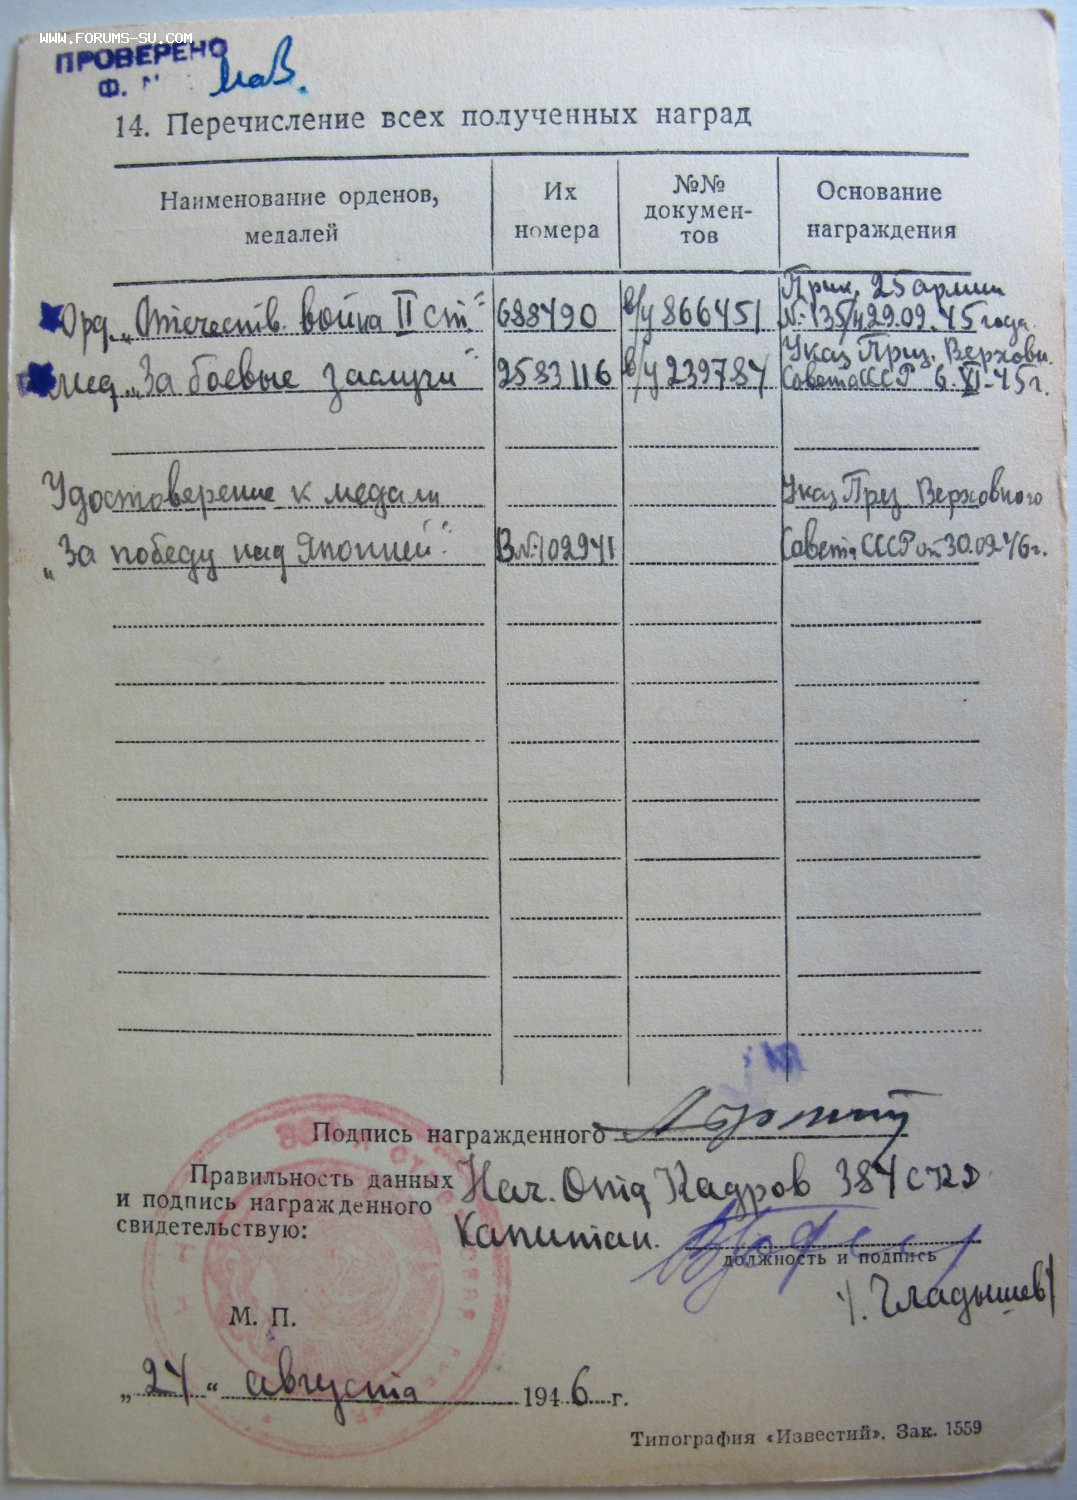 WWW.FORUMS-SU.COM
ПРОВЕРЕНО
Ф.
14. Перечисление всех полученных наград
Наименование орденов, медалей
Их номера
№№ докумен-тов
Основание награждения
Орд. „Отечеств. война II ст." 688490 в/у 866451 Прик. 25 армии №135/н 29.09.45 года
Мед. „За боевые заслуги" 2583116 в/у 239784 Указ През. Верховн. Совета СССР 6.XI-45г.
Удостоверение к медали Указ През Верховного
„За победу над Японией". В №102941 Совета СССР от 30.09.46г.
Подпись награжденного
Правильность данных Нач. Отд Кадров 384 СКД
и подпись награжденного
свидетельствую: Капитан.
должность и подпись
/. Гладышев/
М. П.
„24“ августа 1946 г.
Типография «Известий». Зак. 1559